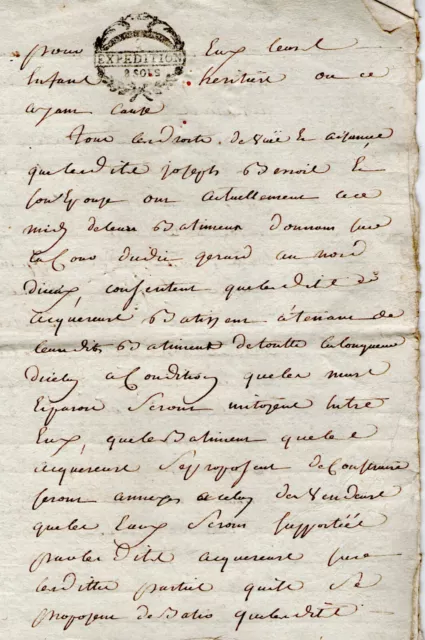 pour Eux leurs
EXPEDITION
8 SOLS
Enfans heritiers ou
ayant cause
Tous les droits de vüe et
que lesdits joseph Benoit Et
son Epouse ont actuellement
midy de leurs Batimens donnant sur
la Cour dudit gerard au nord
consentent que lesdits
acquereurs Batissent atenant de
leursdits Batiment de toutte la longueur
dicelui a Condition que les murs
seront mitoyens Entre
Eux, que le Batiment que les
acquereurs se proposent de Construire
seront annexés a celuy des vendeurs
que les Eaux seront supportées
par lesdits acquereurs sur
lesdittes parties quils se
proposent de Batir que lesdits